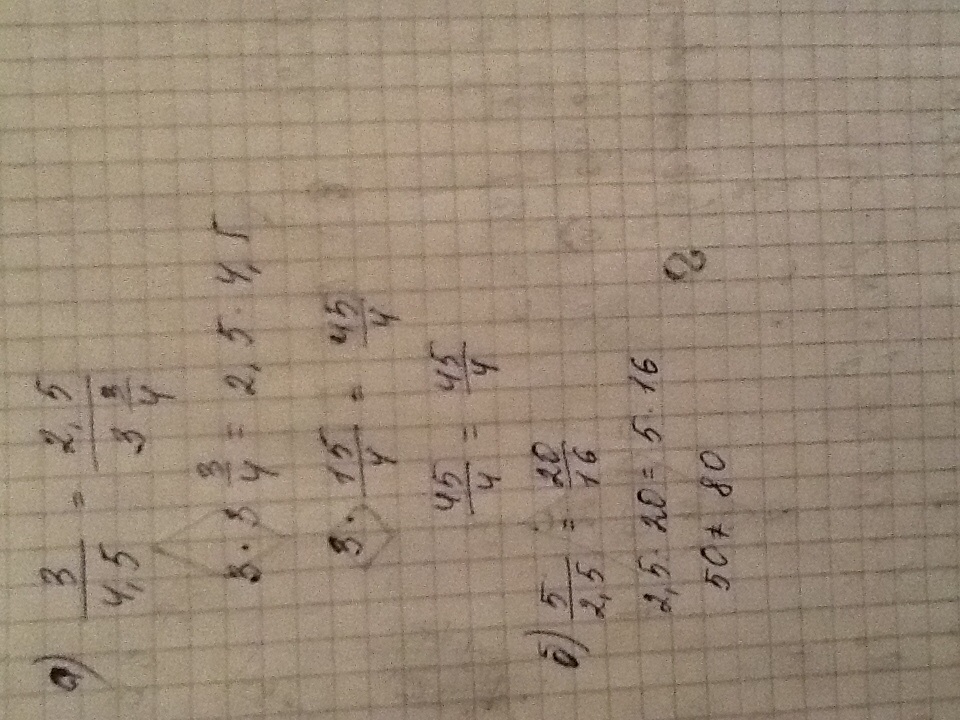 а) 3/4,5 = 2,5/3 3/4
3 · 3 3/4 = 2,5 · 4,5
3 · 15/4 = 45/4
45/4 = 45/4
б) 5/2,5 = 20/16
2,5 · 20 = 5 · 16
50 ≠ 80